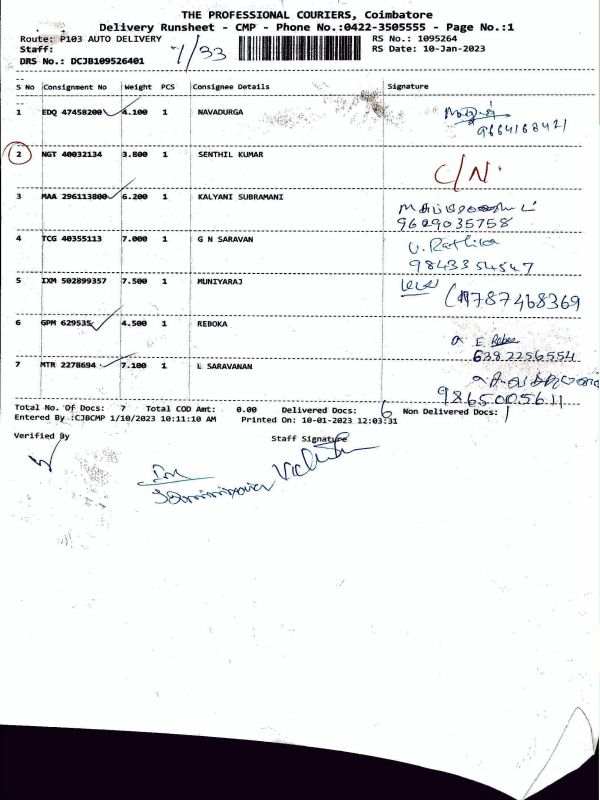 THE PROFESSIONAL COURIERS, Coimbatore
Delivery Runsheet - CMP - Phone No.:0422-3505555 - Page No.:1
Route: P103 AUTO DELIVERY 7/33 RS No.: 1095264
Staff: RS Date: 10-Jan-2023
DRS No.: DCJB109526401
S No Consignment No Weight PCS Consignee Details Signature
1 EDQ 47458200 4.100 1 NAVADURGA
9664168421
2 NGT 40032134 3.800 1 SENTHIL KUMAR C/N.
3 MAA 296113800 6.200 1 KALYANI SUBRAMANI
9629035758
4 TCG 40355113 7.000 1 G N SARAVAN U. Rathika
9843354547
5 IXM 502899357 7.500 1 MUNIYARAJ 9787468369
6 GPM 629535 4.500 1 REBOKA E.
6382256554
7 MTR 2278694 7.100 1 L SARAVANAN
9865005611
Total No. Of Docs: 7 Total COD Amt: 0.00 Delivered Docs: 6 Non Delivered Docs: 1
Entered By :CJBCMP 1/10/2023 10:11:10 AM Printed On: 10-01-2023 12:03:31
Verified By Staff Signature